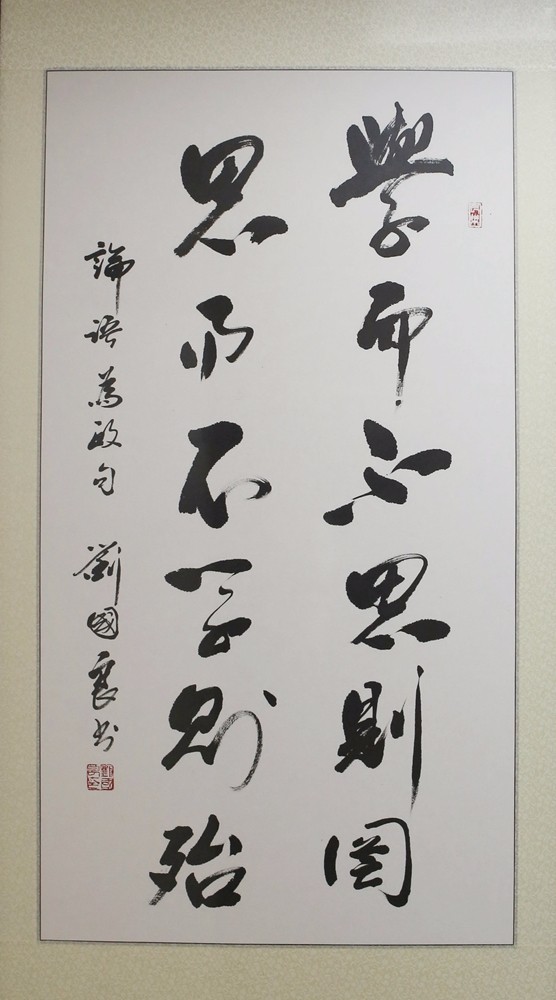 學而不思則罔
思而不学則殆
論語為政句 劉國襄書